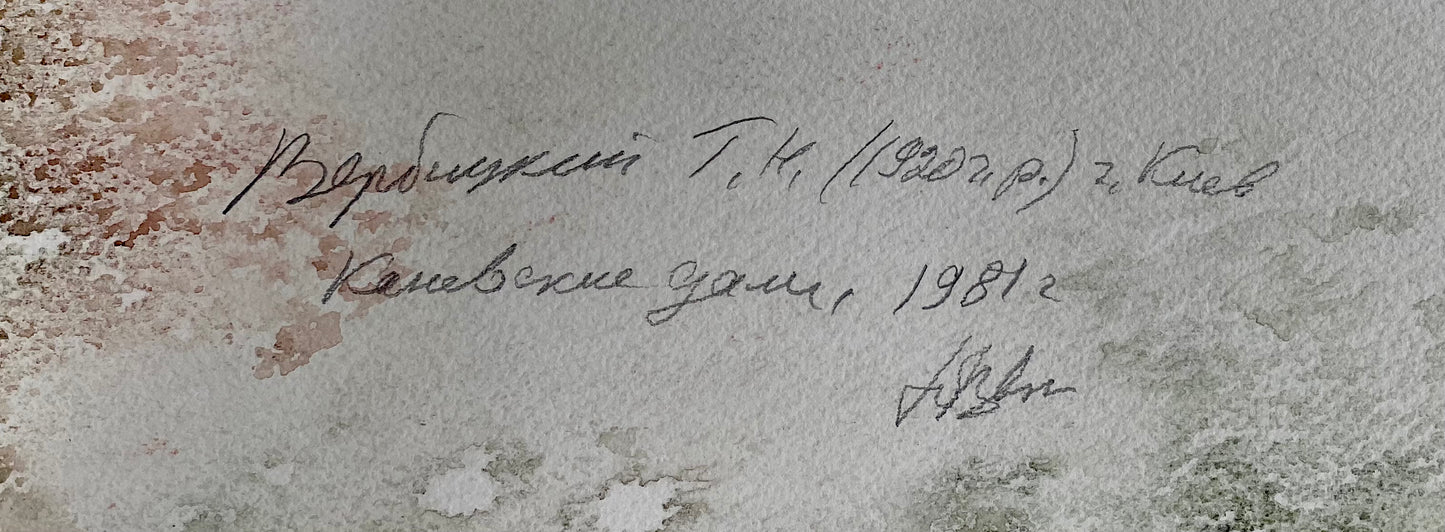 Вербицкий Г.Н. (1920 г.р.) г. Киев
Каневские дали, 1981 г